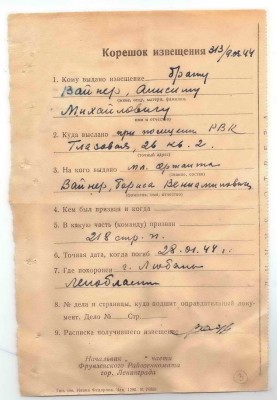 Корешок извещения 313/9.02.44
1. Кому выдано извещение брату
Вайнер, Анисиму
(жене, отцу, матери, фамилия,
Михайловичу
имя и отчество)
2. Куда выслано при РВК
26 кв. 2.
(точный адрес)
3. На кого выдано мл. сержанта
(звание, пост)
Вайнер, Бориса Вениаминович
(фамилия, имя, отчество)
4. Кем был призван и когда
5. В какую часть (команду) призван
218 стр. п.
6. Точная дата, когда погиб 28.01.44 г.
7. Где похоронен г. Любань
Ленобласти
8. № дела и страницы, куда подшит оправдательный документ. Дело № Стр.
9. Расписка получившего извещение
Начальник " части
Фрунзенского Райвоенкомата
гор. Ленинграда